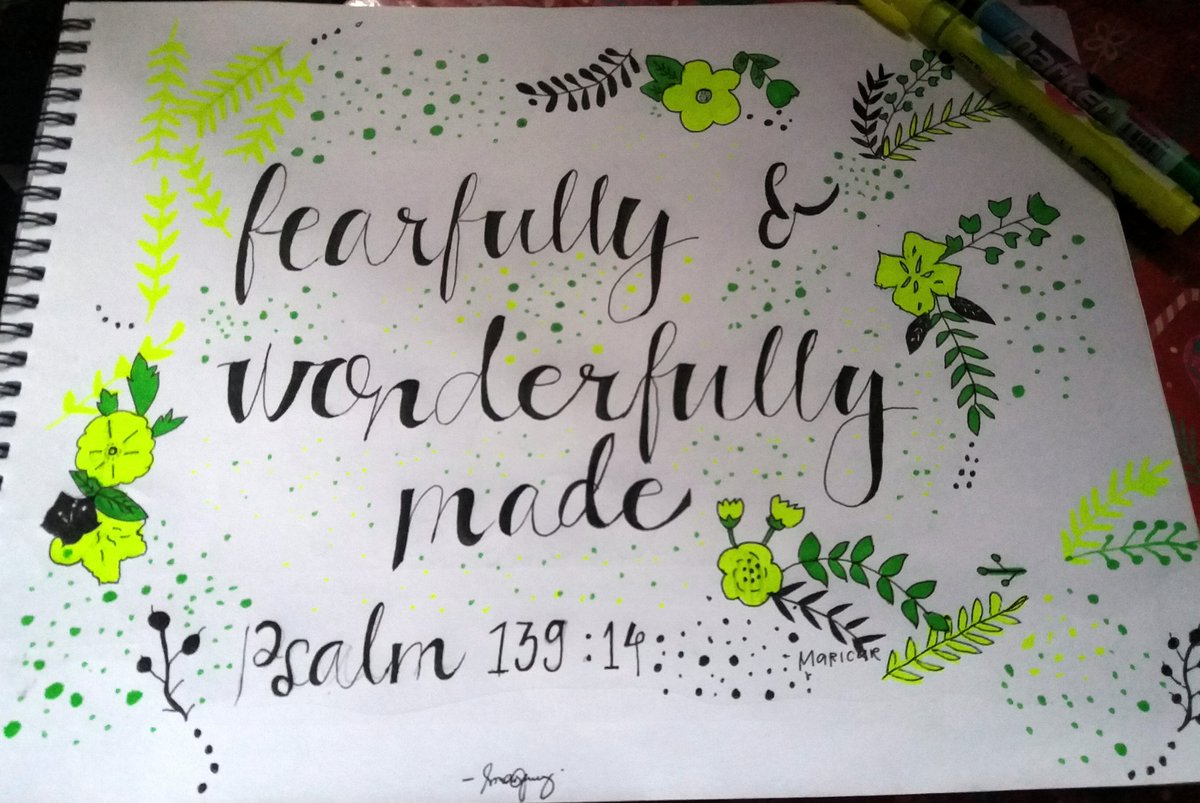 fearfully &
wonderfully
made
Psalm 139:14
MARICAR